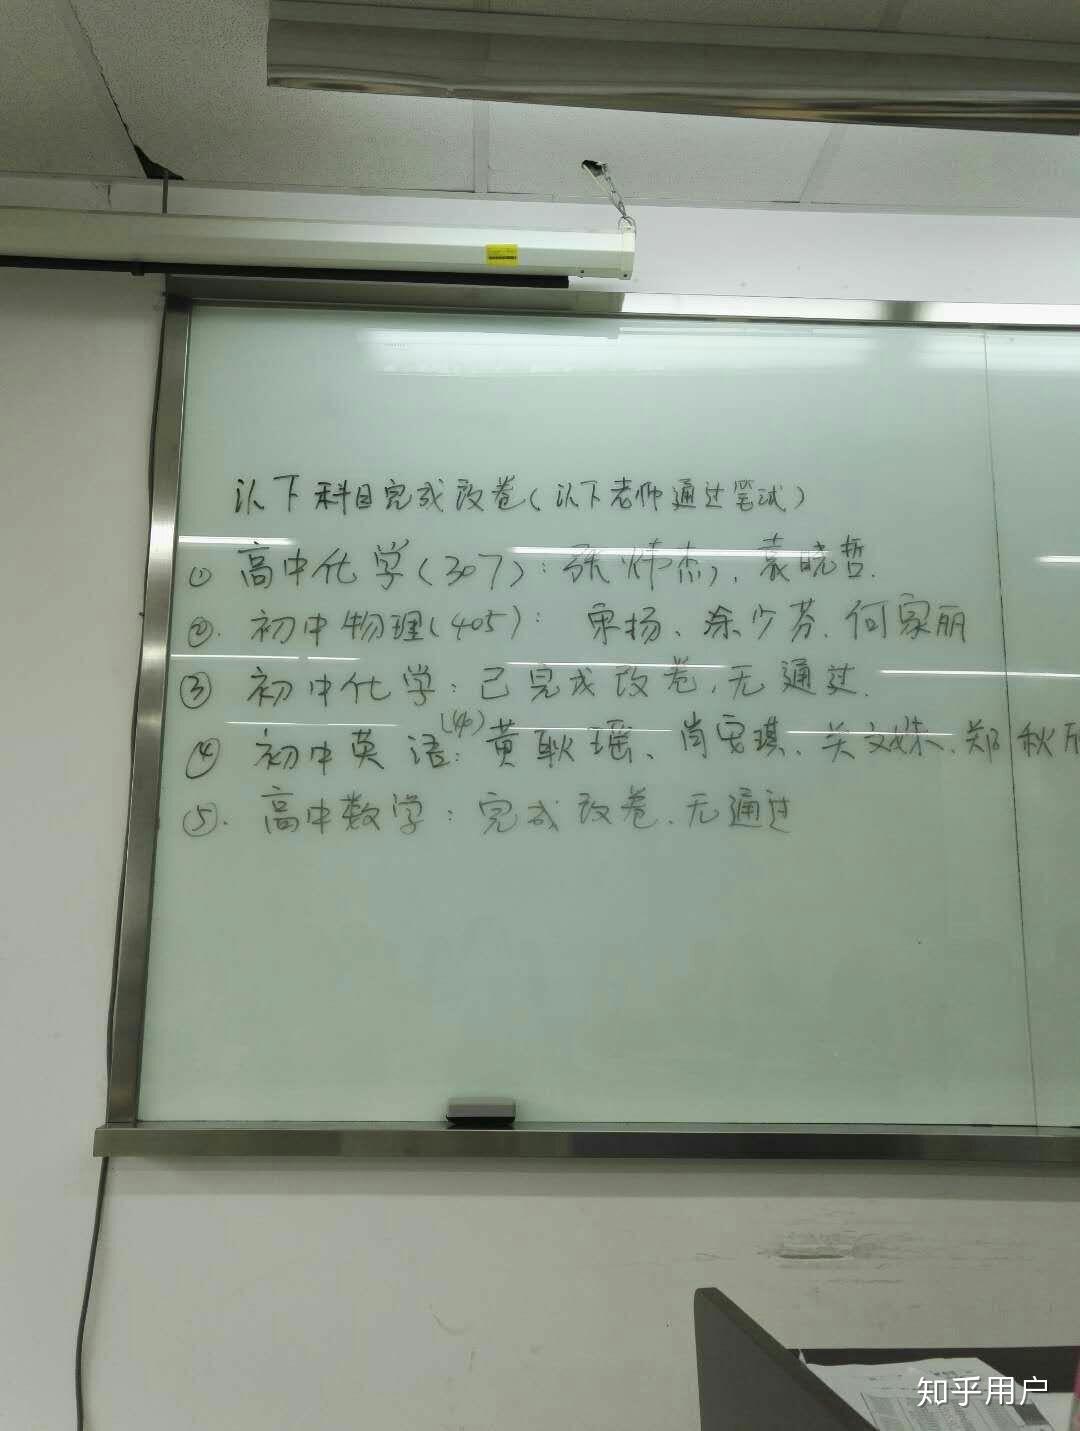 以下科目完成改卷(以下老师通过笔试)
① 高中化学(307):张炜杰、袁晓哲.
②. 初中物理(405): 宋扬、涂少芬.何家丽
③ 初中化学:已完成改卷,无通过.
④ 初中英语(40):黄耿瑶、肖雯琪、关文姝.郑秋
⑤. 高中数学:完成改卷.无通过
知乎用户